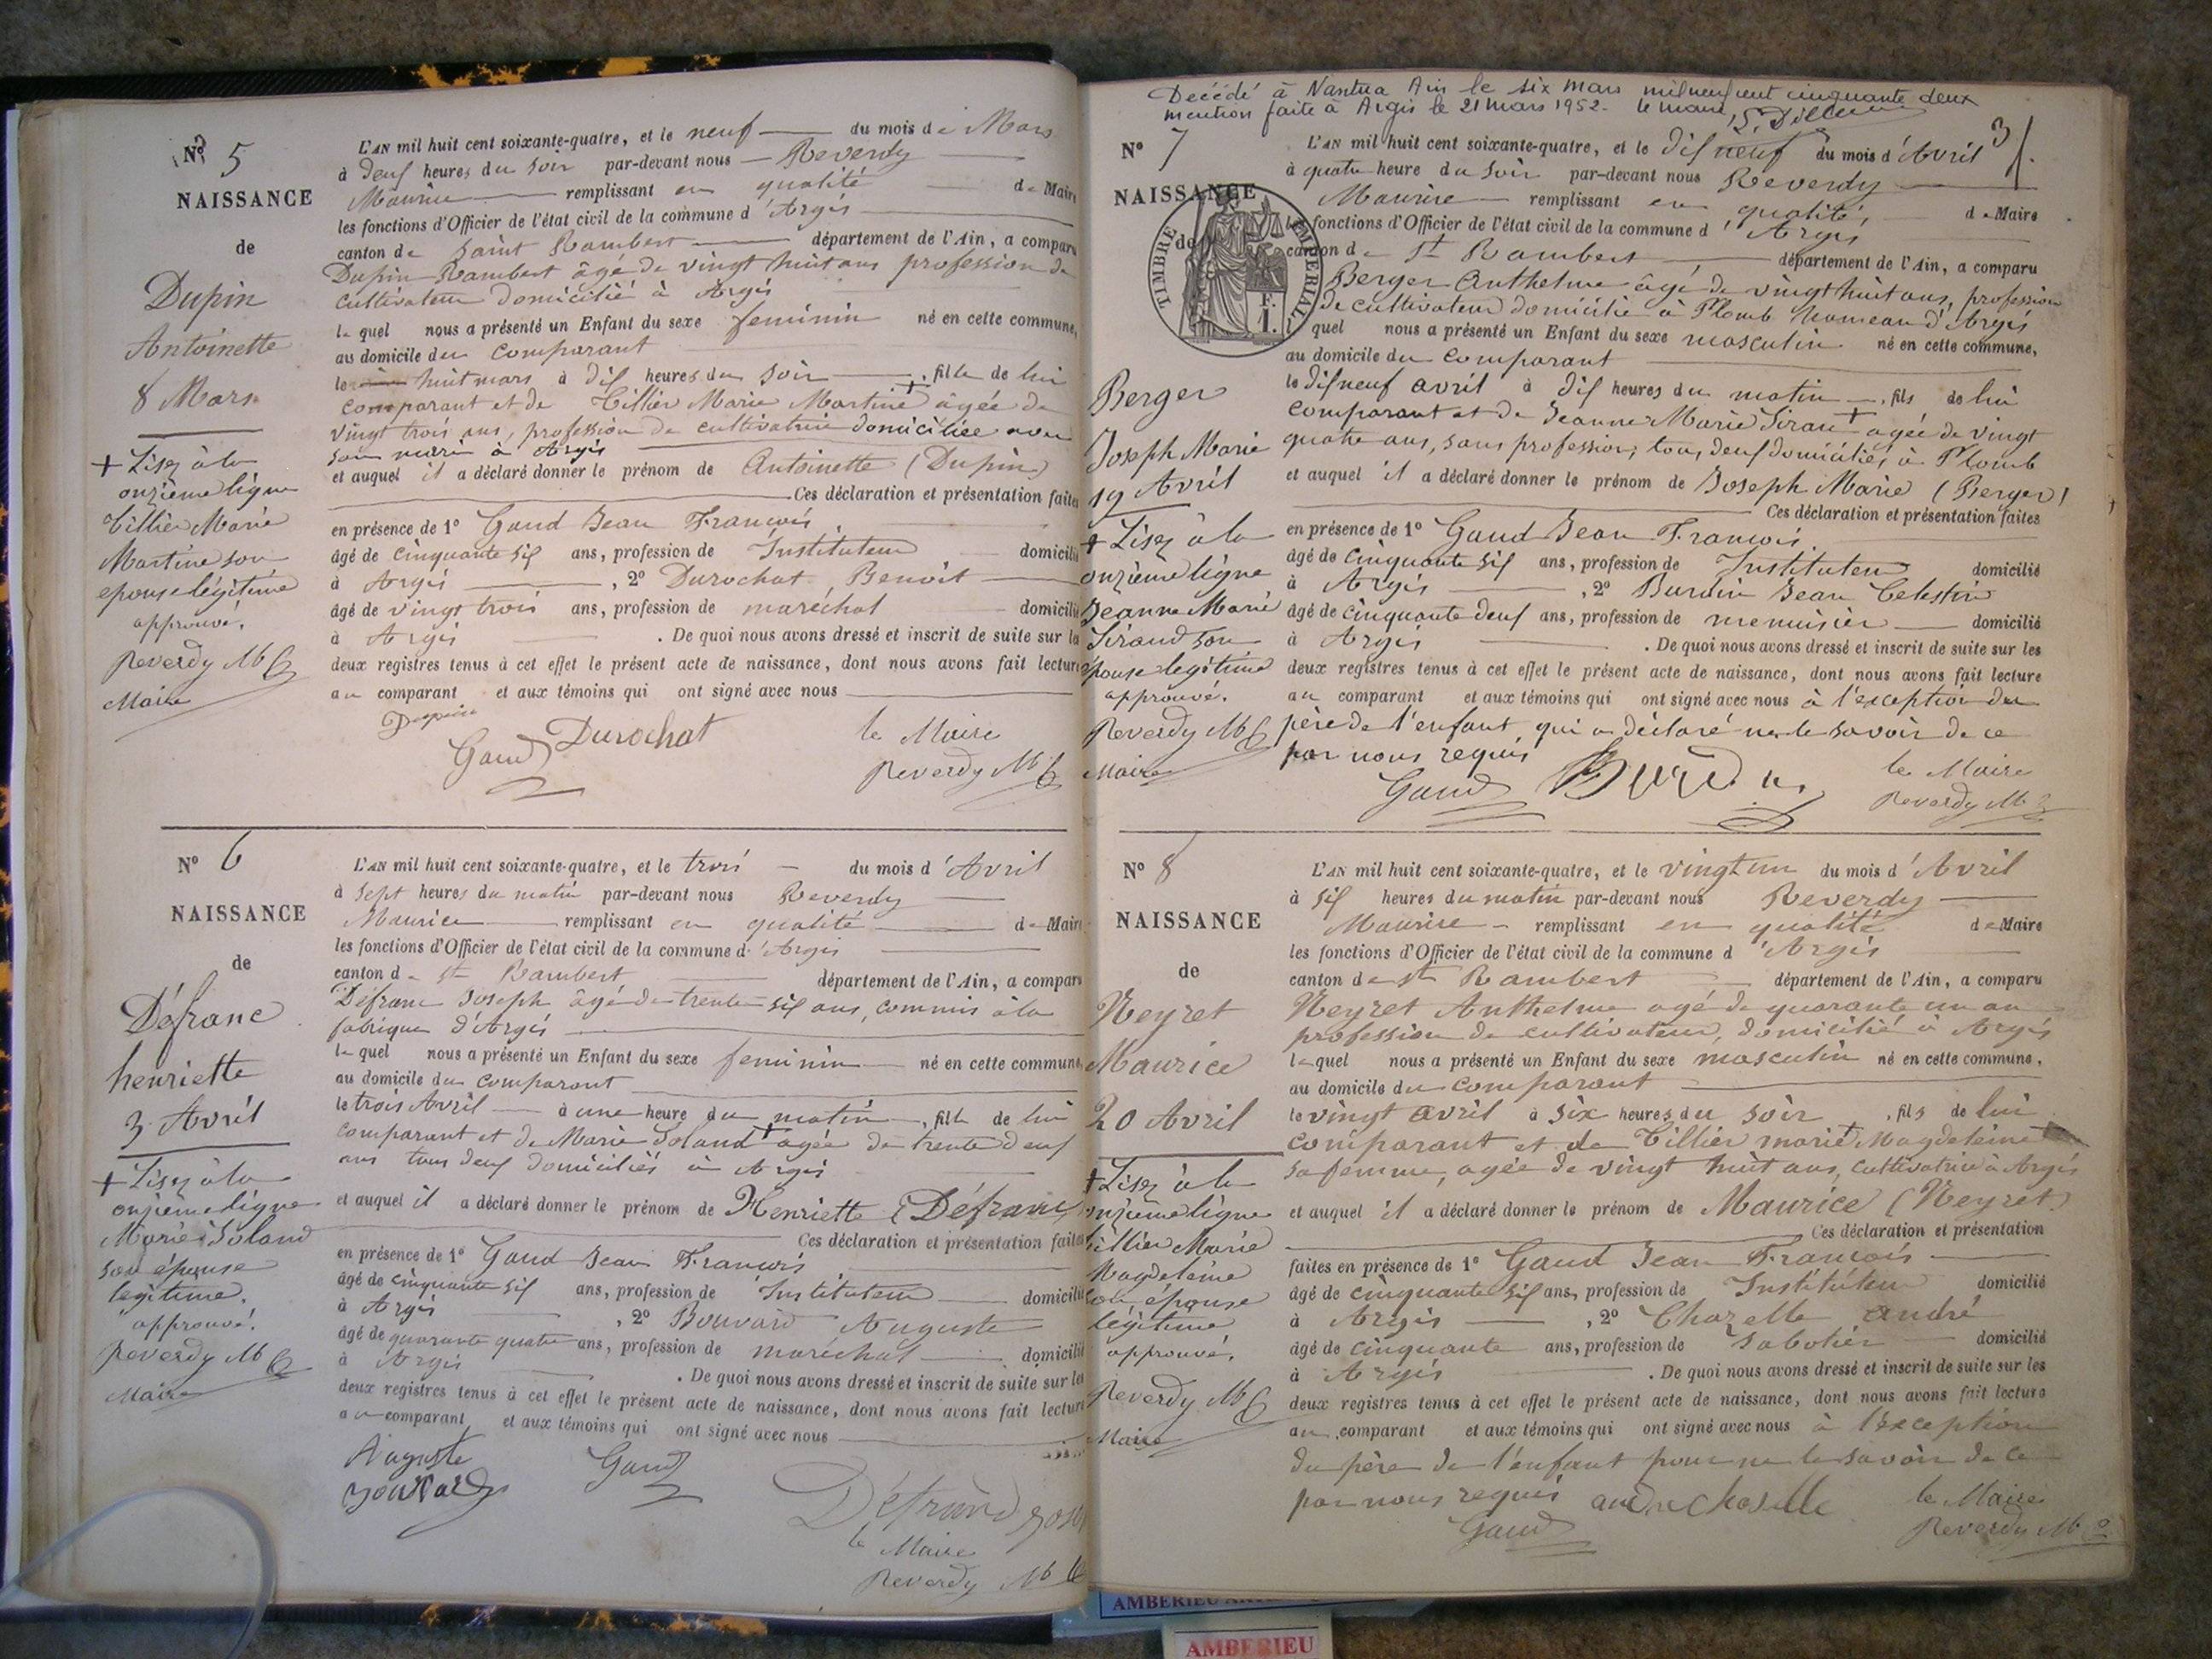 N° 5
NAISSANCE
de
Dupin
Antoinette
8 Mars
+ Lisez à la
onzième ligne
Tillier Marie
Martine son
epouse légitime
approuvé.
Reverdy Mce
Maire
L'AN mil huit cent soixante-quatre, et le neuf du mois de Mars
à deux heures du soir par-devant nous Reverdy
Maurice remplissant en qualité de Maire
les fonctions d'Officier de l'état civil de la commune d'Argis
canton de Saint Rambert département de l'Ain, a comparu
Dupin Rambert âgé de vingt huit ans profession de
cultivateur domicilié à Argis
lequel nous a présenté un Enfant du sexe feminin né en cette commune,
au domicile du comparant
le huit mars à dix heures du soir, fille de lui
comparant et de Tillier Marie Martine + âgée de
vingt trois ans, profession de cultivatrice domiciliée avec
son mari à Argis
et auquel il a déclaré donner le prénom de Antoinette (Dupin)
Ces déclaration et présentation faites
en présence de 1° Gaud Jean François
âgé de cinquante six ans, profession de Instituteur domicilié
à Argis, 2° Durochat Benoit
âgé de vingt trois ans, profession de maréchal domicilié
à Argis. De quoi nous avons dressé et inscrit de suite sur les
deux registres tenus à cet effet le présent acte de naissance, dont nous avons fait lecture
au comparant et aux témoins qui ont signé avec nous
Dupin
Durochat
Gaud
le Maire
Reverdy Mce
N° 6
NAISSANCE
de
Défranc
henriette
3 Avril
+ Lisez à la
onzième ligne
Marie Soland
son épouse
legitime.
approuvé.
Reverdy Mce
Maire
L'AN mil huit cent soixante-quatre, et le trois du mois d'Avril
à sept heures du matin par-devant nous Reverdy
Maurice remplissant en qualité de Maire
les fonctions d'Officier de l'état civil de la commune d'Argis
canton de st Rambert département de l'Ain, a comparu
Défranc Joseph âgé de trente six ans, commis à la
fabrique d'Argis
lequel nous a présenté un Enfant du sexe feminin né en cette commune,
au domicile du comparant
le trois Avril à une heure du matin, fille de lui
comparant et de Marie Soland + agée de trente deux
ans tous deux domiciliés à Argis
et auquel il a déclaré donner le prénom de Henriette (Défranc)
Ces déclaration et présentation faites
en présence de 1° Gaud Jean François
âgé de cinquante six ans, profession de Instituteur domicilié
à Argis, 2° Bouvard Auguste
âgé de quarante quatre ans, profession de maréchal domicilié
à Argis. De quoi nous avons dressé et inscrit de suite sur les
deux registres tenus à cet effet le présent acte de naissance, dont nous avons fait lecture
au comparant et aux témoins qui ont signé avec nous
Auguste
Bouvard
Gaud
Défrand
le Maire
Reverdy Mce
Decédé à Nantua Ain le six mars mil neuf cent cinquante deux
mention faite à Argis le 21 mars 1952. le maire,
3
N° 7
NAISSANCE
de
TIMBRE IMPERIAL
Berger
Joseph Marie
19 Avril
+ Lisez à la
onzième ligne
Jeanne Marie
Siraud son
épouse legitime
approuvé.
Reverdy Mce
Maire
L'AN mil huit cent soixante-quatre, et le dix neuf du mois d'Avril
à quatre heure du soir par-devant nous Reverdy
Maurice remplissant en qualité, de Maire
les fonctions d'Officier de l'état civil de la commune d'Argis
canton de St Rambert département de l'Ain, a comparu
Berger Anthelme âgé de vingt huit ans, profession
de cultivateur domicilié à Plomb hameau d'Argis
quel nous a présenté un Enfant du sexe masculin né en cette commune,
au domicile du comparant
le dix neuf avril à dix heures du matin, fils de lui
comparant et de Jeanne Marie Siraud + agée de vingt
quatre ans, sans profession, tous deux domiciliés à Plomb
et auquel il a déclaré donner le prénom de Joseph Marie (Berger)
Ces déclaration et présentation faites
en présence de 1° Gaud Jean François
âgé de cinquante six ans, profession de Instituteur domicilié
à Argis, 2° Burdin Jean Celestin
âgé de cinquante deux ans, profession de menuisier domicilié
à Argis. De quoi nous avons dressé et inscrit de suite sur les
deux registres tenus à cet effet le présent acte de naissance, dont nous avons fait lecture
au comparant et aux témoins qui ont signé avec nous à l'exception du
père de l'enfant qui a déclaré ne le savoir de ce
par nous requis
Gaud
Burdin
le Maire
Reverdy Mce
N° 8
NAISSANCE
de
Neyret
Maurice
20 Avril
+ Lisez à la
onzième ligne
Tillier Marie
Magdeleine
son épouse
légitime
approuvé.
Reverdy Mce
Maire
L'AN mil huit cent soixante-quatre, et le vingt un du mois d'Avril
à six heures du matin par-devant nous Reverdy
Maurice remplissant en qualité de Maire
les fonctions d'Officier de l'état civil de la commune d'Argis
canton de st Rambert département de l'Ain, a comparu
Neyret Anthelme agé de quarante un an
profession de cultivateur, domicilié à Argis
lequel nous a présenté un Enfant du sexe masculin né en cette commune,
au domicile du comparant
le vingt avril à six heures du soir, fils de lui
comparant et de Tillier marie Magdeleine +
sa femme, agée de vingt huit ans, cultivatrice à Argis
et auquel il a déclaré donner le prénom de Maurice (Neyret)
Ces déclaration et présentation
faites en présence de 1° Gaud Jean François
âgé de cinquante six ans, profession de Instituteur domicilié
à Argis, 2° Chazelle andré
âgé de cinquante ans, profession de Sabotier domicilié
à Argis. De quoi nous avons dressé et inscrit de suite sur les
deux registres tenus à cet effet le présent acte de naissance, dont nous avons fait lecture
au comparant et aux témoins qui ont signé avec nous à l'exception
du père de l'enfant pour ne le savoir de ce
par nous requis
andre chaselle
Gaud
le Maire
Reverdy Mce
AMBERIEU
AMBERIEU